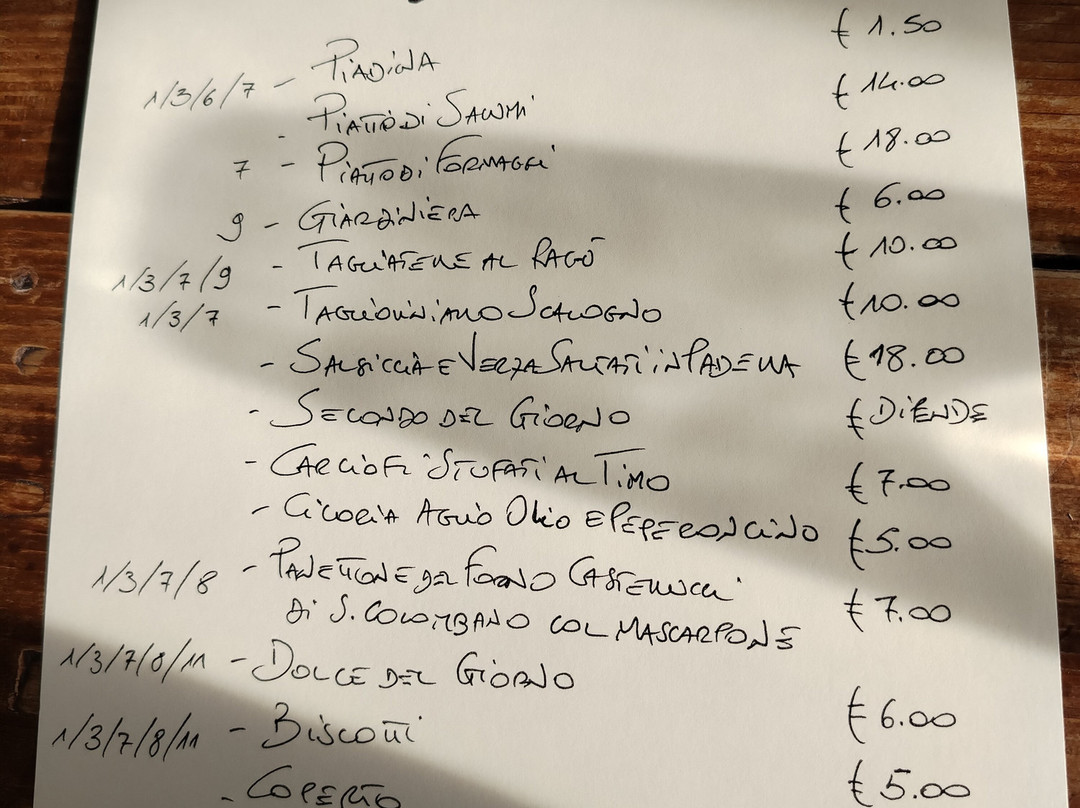 1/3/6/7 - PIADINA € 1.50
- PIATTO DI SALUMI € 14.00
7 - PIATTO DI FORMAGGI € 18.00
9 - GIARDINIERA € 6.00
1/3/7/9 - TAGLIATELLE AL RAGÙ € 10.00
1/3/7 - TAGLIOLINI ALLO SCALOGNO € 10.00
- SALSICCIA E VERZA SALTATI IN PADELLA € 18.00
- SECONDO DEL GIORNO € DIPENDE
- CARCIOFI STUFATI AL TIMO € 7.00
- CICORIA AGLIO OLIO E PEPERONCINO € 5.00
1/3/7/8 - PANETTONE DEL FORNO CASTELLUCCI € 7.00
DI S. COLOMBANO COL MASCARPONE
1/3/7/8/11 - DOLCE DEL GIORNO € 6.00
1/3/7/8/11 - BISCOTTI € 5.00
- COPERTO